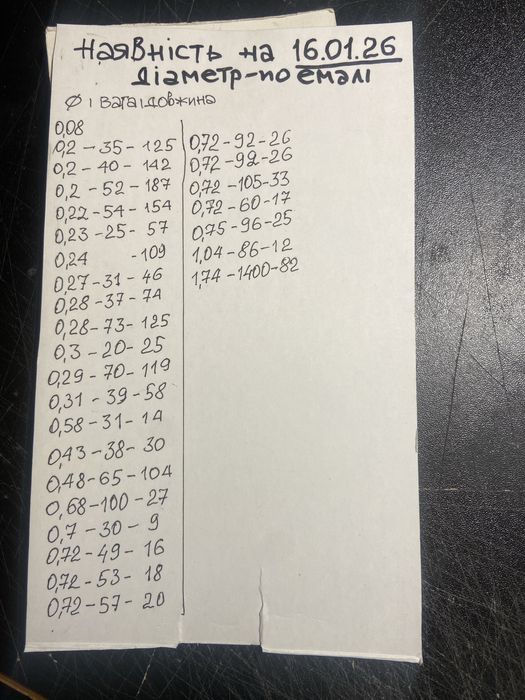 Наявність на 16.01.26
Діаметр-по емалі
Ø і вага і довжина
0,08
0,2 - 35 - 125
0,2 - 40 - 142
0,2 - 52 - 187
0,22 - 54 - 154
0,23 - 25 - 57
0,24 - 109
0,27 - 31 - 46
0,28 - 37 - 74
0,28 - 73 - 125
0,3 - 20 - 25
0,29 - 70 - 119
0,31 - 39 - 58
0,58 - 31 - 14
0,43 - 38 - 30
0,48 - 65 - 104
0,68 - 100 - 27
0,7 - 30 - 9
0,72 - 49 - 16
0,72 - 53 - 18
0,72 - 57 - 20
0,72 - 92 - 26
0,72 - 92 - 26
0,72 - 105 - 33
0,72 - 60 - 17
0,75 - 96 - 25
1,04 - 86 - 12
1,74 - 1400 - 82